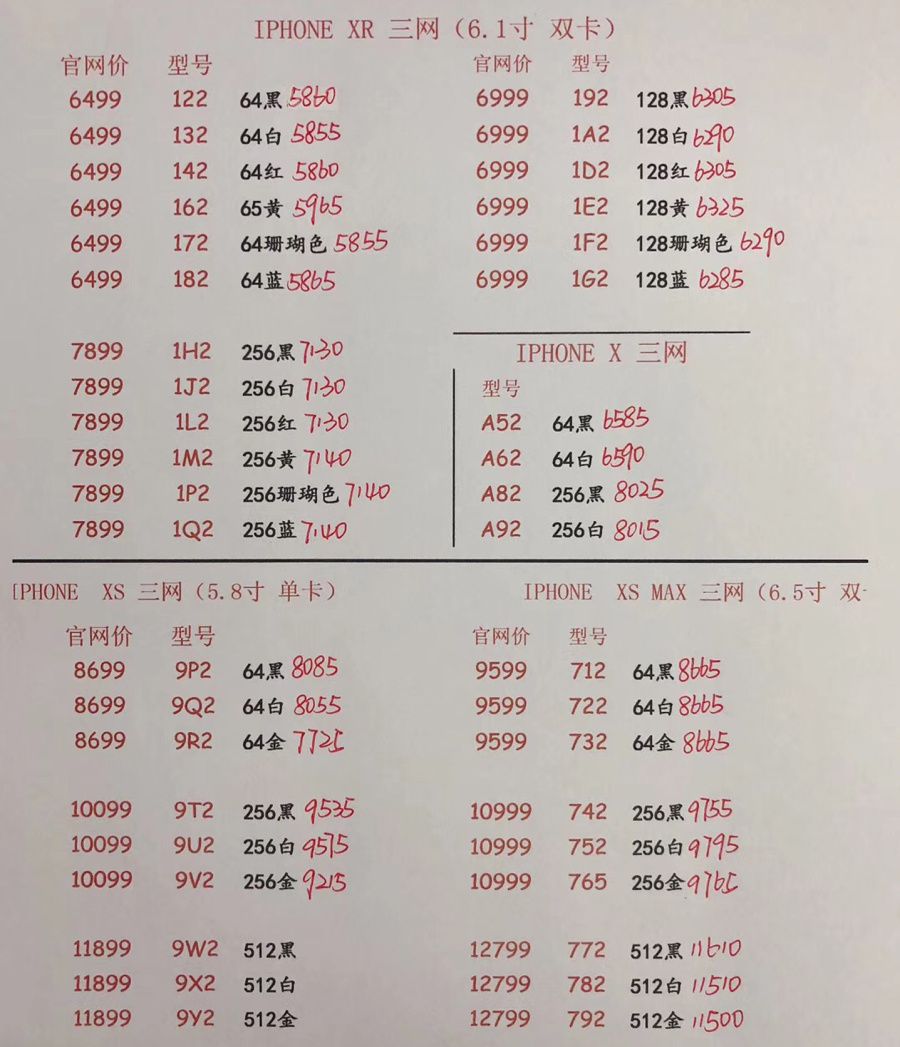 IPHONE XR 三网（6.1寸 双卡）
官网价 型号
6499 122 64黑 5860
6499 132 64白 5855
6499 142 64红 5860
6499 162 65黄 5965
6499 172 64珊瑚色 5855
6499 182 64蓝 5865
7899 1H2 256黑 7130
7899 1J2 256白 7130
7899 1L2 256红 7130
7899 1M2 256黄 7140
7899 1P2 256珊瑚色 7140
7899 1Q2 256蓝 7140
官网价 型号
6999 192 128黑 6305
6999 1A2 128白 6290
6999 1D2 128红 6305
6999 1E2 128黄 6325
6999 1F2 128珊瑚色 6290
6999 1G2 128蓝 6285
IPHONE X 三网
型号
A52 64黑 6585
A62 64白 6590
A82 256黑 8025
A92 256白 8015
IPHONE XS 三网（5.8寸 单卡）
官网价 型号
8699 9P2 64黑 8085
8699 9Q2 64白 8055
8699 9R2 64金 7725
10099 9T2 256黑 9535
10099 9U2 256白 9575
10099 9V2 256金 9215
11899 9W2 512黑
11899 9X2 512白
11899 9Y2 512金
IPHONE XS MAX 三网（6.5寸 双
官网价 型号
9599 712 64黑 8665
9599 722 64白 8665
9599 732 64金 8665
10999 742 256黑 9755
10999 752 256白 9795
10999 765 256金 9765
12799 772 512黑 11610
12799 782 512白 11510
12799 792 512金 11500